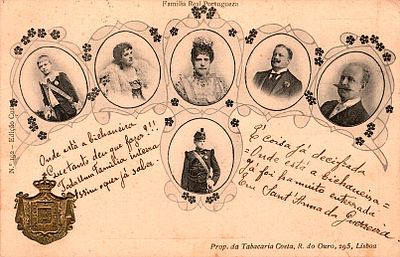 Familia Real Portugueza
Nº 102 — Edição Costa
Onde está a bichaneira
Que tanto deu que fazer?!!
Toda uma familia inteira
Assim o quer já saber.
E' coisa já decifrada
= Onde está a bichaneira =
Já foi ha muito enterrada
em Sant'Anna da Guerreira
Prop. da Tabacaria Costa, R. do Ouro, 295, Lisboa